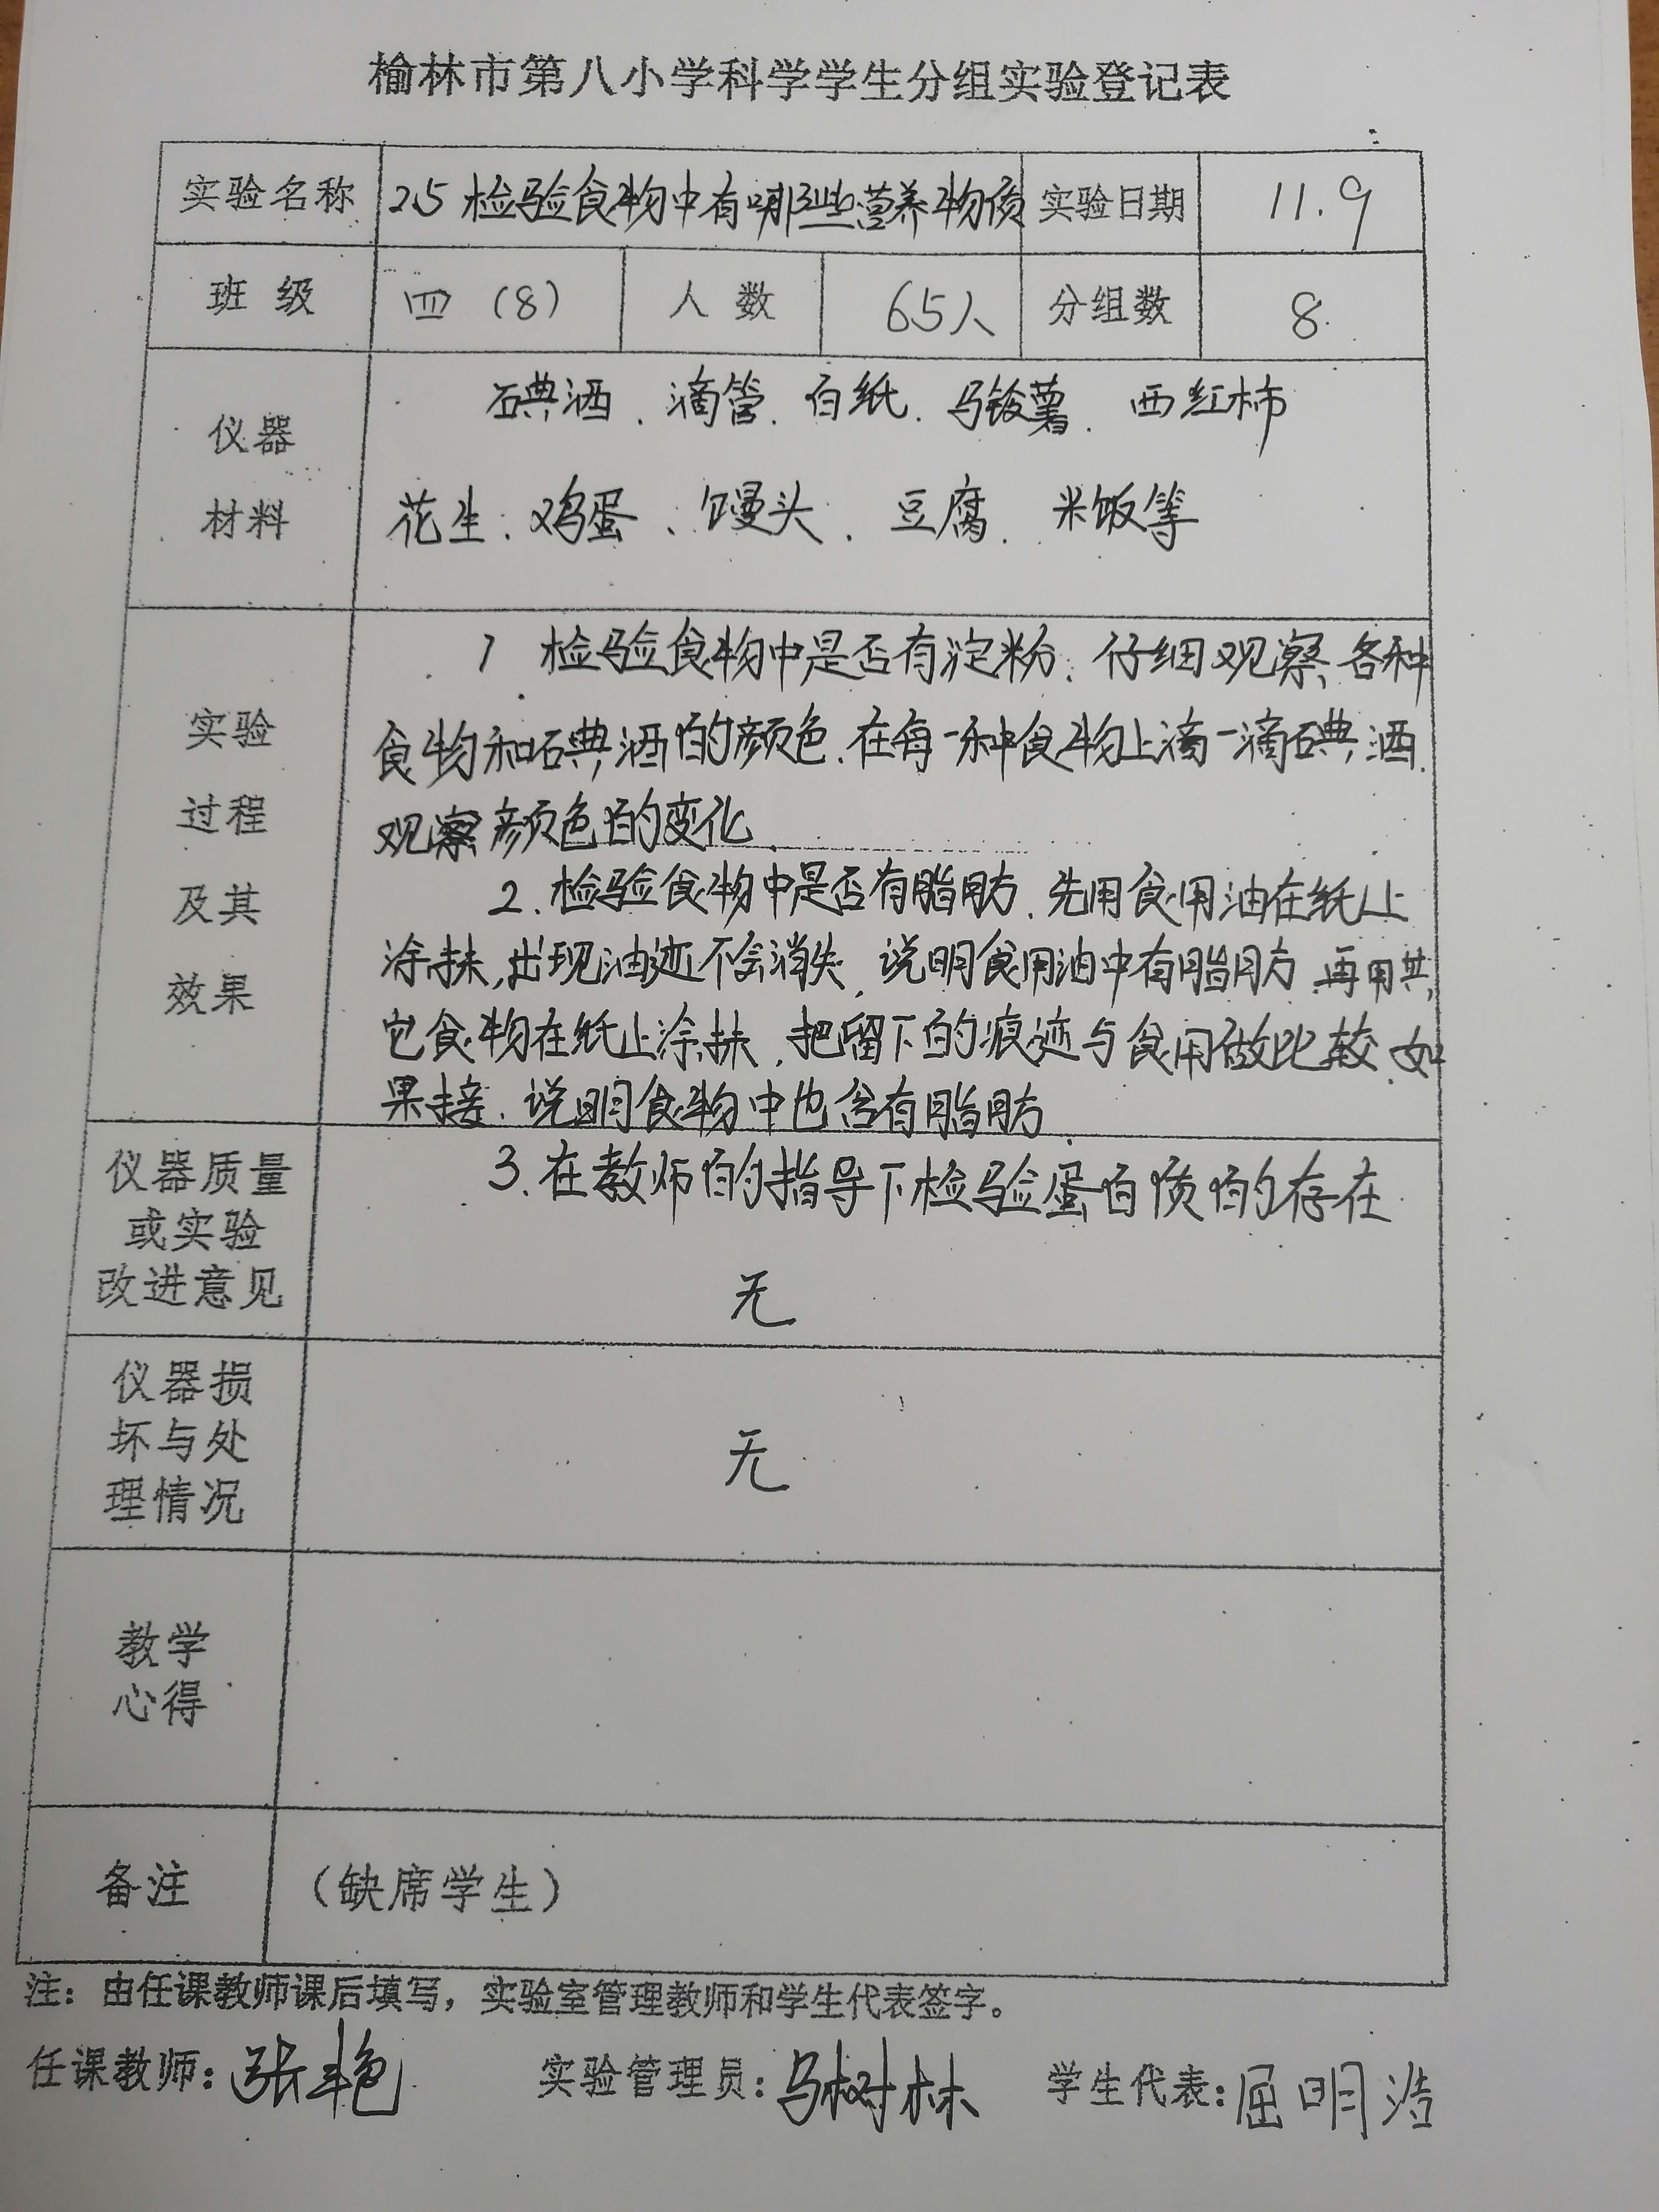 榆林市第八小学科学学生分组实验登记表
实验名称 2.5 检验食物中有哪些营养物质 实验日期 11.9
班 级 四（8） 人 数 65人 分组数 8
仪器
材料
碘酒、滴管、白纸、马铃薯、西红柿
花生、鸡蛋、馒头、豆腐、米饭等
实验
过程
及其
效果
1 检验食物中是否有淀粉、仔细观察各种
食物和碘酒的颜色、在每一种食物上滴一滴碘酒、
观察颜色的变化
2、检验食物中是否有脂肪、先用食用油在纸上
涂抹,出现油迹不会消失、说明食用油中有脂肪、再用其
它食物在纸上涂抹、把留下的痕迹与食用做比较、如
果接、说明食物中也含有脂肪、
仪器质量
或实验
改进意见
3、在教师的指导下检验蛋白质的存在
无
仪器损
坏与处
理情况
无
教学
心得
备注 （缺席学生）
注：由任课教师课后填写，实验室管理教师和学生代表签字。
任课教师：张艳 实验管理员：马树林 学生代表：屈明浩